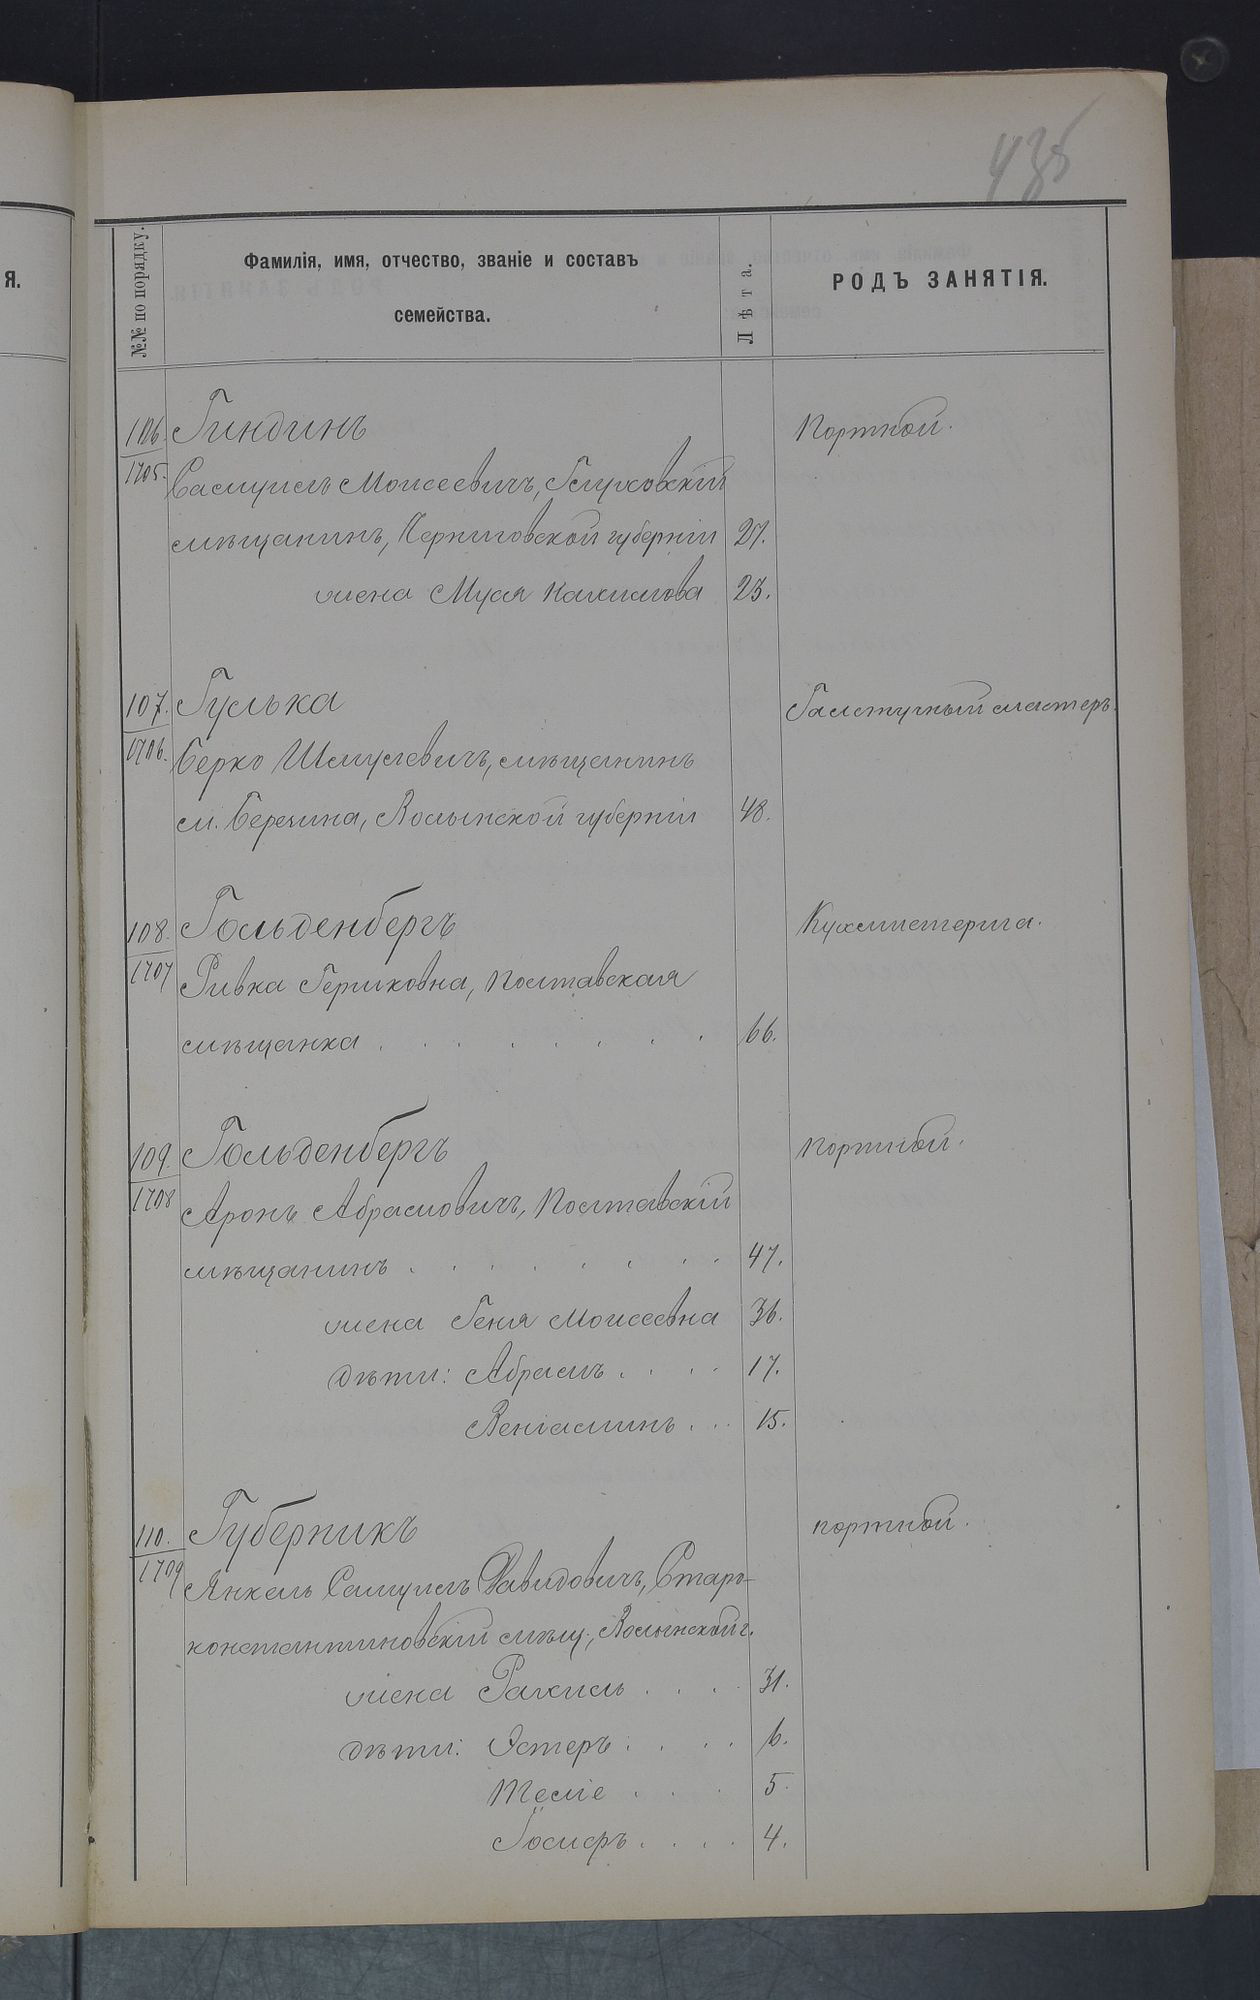 438
Я.
№№ по порядку.
Фамилія, имя, отчество, званіе и составъ
семейства.
Лѣта.
РОДЪ ЗАНЯТІЯ.
106. Гиндинъ Портной.
1705. Самуилъ Моисеевичъ, Глуховскій
мѣщанинъ, Черниговской губерніи 27.
жена Муся Нахимова 23.
107. Гулька Галстучный мастеръ.
1706. Берко Шмулевичъ, мѣщанинъ
м. Березина, Волынской губерніи 48.
108. Гольденбергъ Кухмистерша.
1707 Ривка Гершковна, Полтавская
мѣщанка . . . . . . . . 66.
109. Гольденбергъ Портной.
1708 Аронъ Абрамовичъ, Полтавскій
мѣщанинъ . . . . . . . . 47.
жена Геня Моисеевна 36.
дѣти: Абрамъ . . . . 17.
Веніаминъ . . . 15.
110. Губерникъ портной.
1709 Янкель Самуилъ Давидовичъ, Старо-
константиновскій мѣщ., Волынской г.
жена Рахиль . . . . 31.
дѣти: Эстеръ . . . . 6.
5.
Іосифъ . . . . 4.